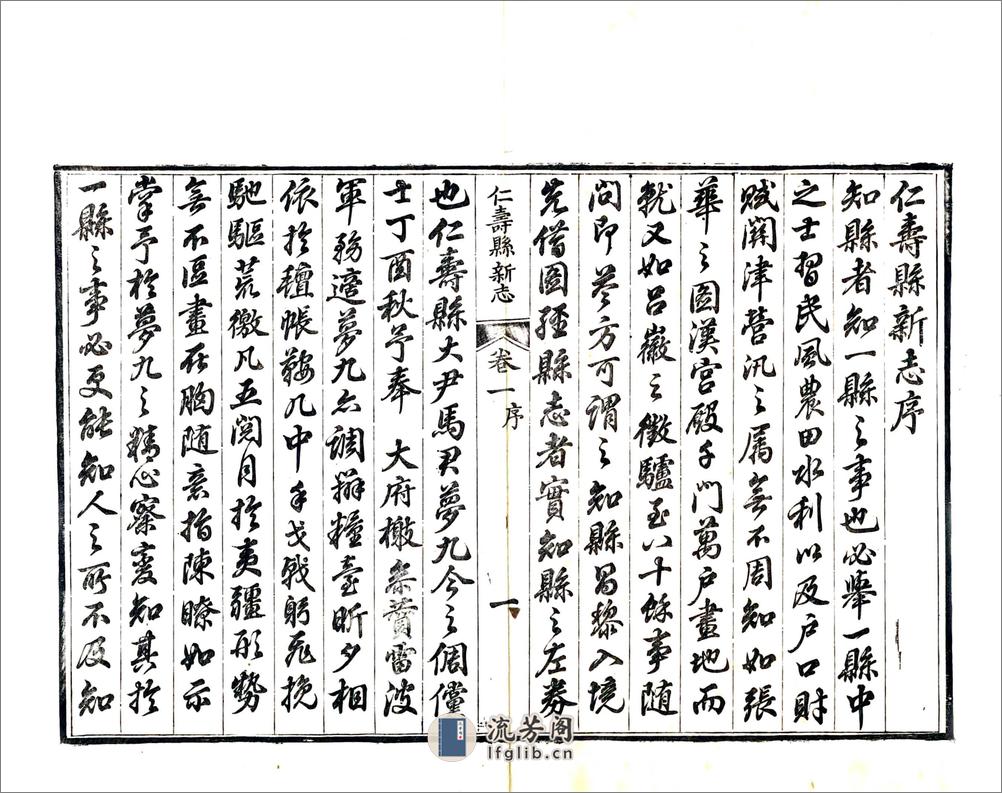 仁壽縣新志序
知縣者知一縣之事也必舉一縣中
之士習民風農田水利以及户口財
賦關津營汛之屬無不周知如張
華之圖漢宫殿千門萬户畫地而
就又如吕徽之徵驢至八十餘事随
问即答方可謂之知縣昌黎入境
先借圖經縣志者實知縣之左券
仁壽縣新志
卷一
序
一
也仁壽縣大尹馬君夢九今之倜儻
士丁酉秋予奉 大府檄參贊雷波
軍務適夢九亦調辦糧臺昕夕相
依於氊帳鞍几中手戈戟躬飛挽
馳驅荒徼凡五閲月於夷疆形勢
無不區畫在胸随意指陳瞭如示
掌予於夢九之精心察變知其於
一縣之事必更能知人之所不及知
流芳阁
lfglib.cn